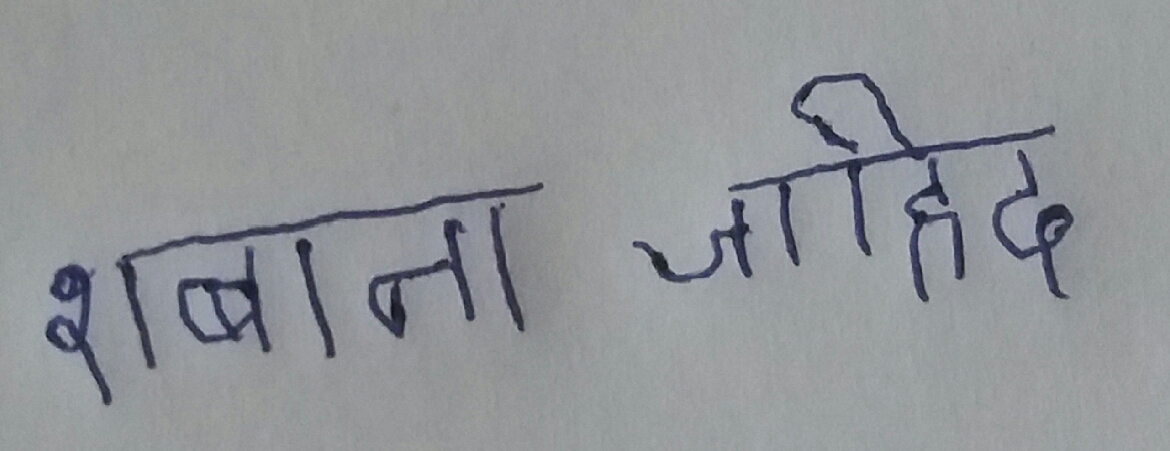 शबाना जाहिद